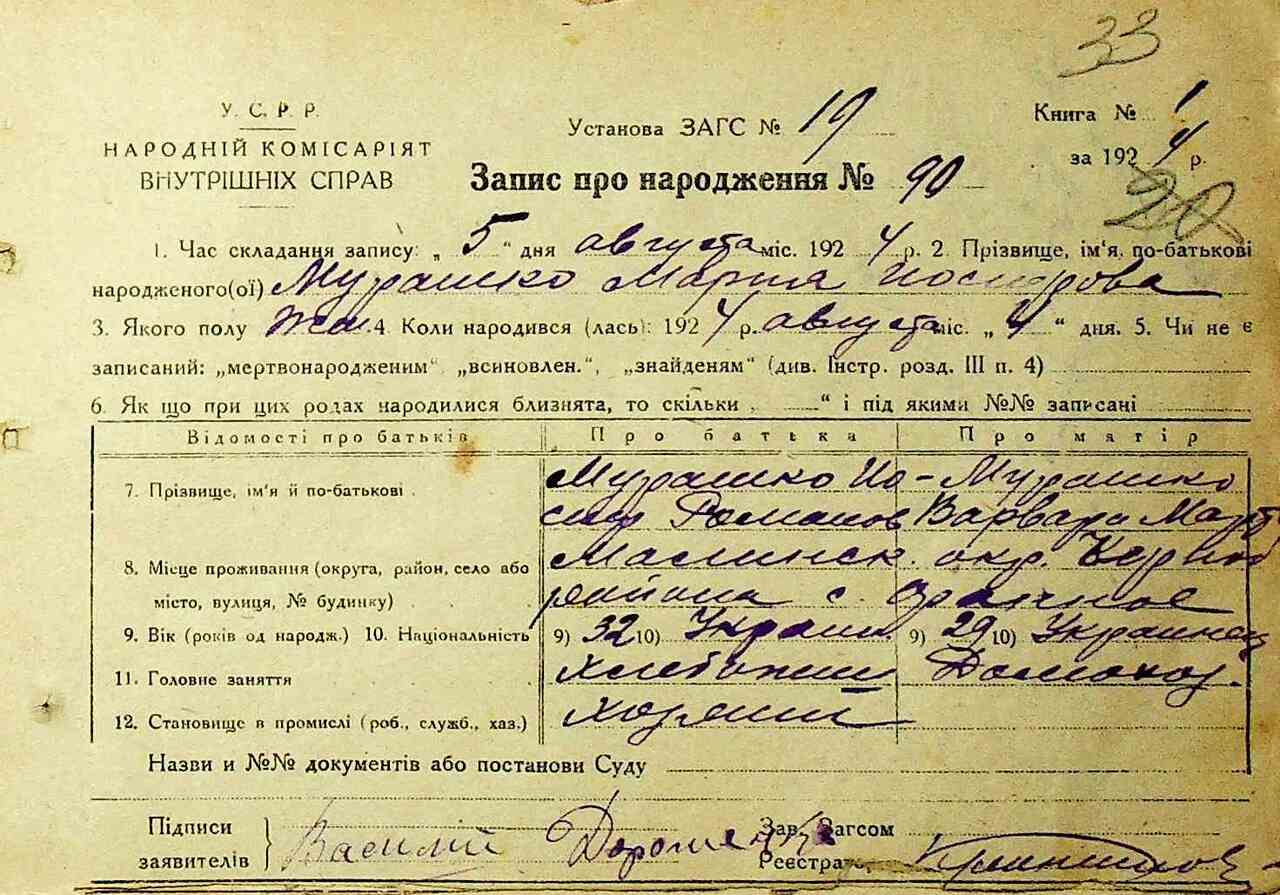 33
У. С. Р. Р.
НАРОДНІЙ КОМІСАРІЯТ
ВНУТРІШНІХ СПРАВ
Установа ЗАГС № 19
Книга № 1
за 1924 р.
20
Запис про народження № 90
1. Час складання запису: „ 5 “ дня августа міс. 1924 р. 2. Прізвище, ім'я, по-батькові
народженого(ої) Мурашко Мария Иосифова
3. Якого полу жен. 4. Коли народився (лась): 1924 р. августа міс. „ 4 “ дня. 5. Чи не є
записаний: „мертвонародженим“ „всиновлен.“, „знайденям“ (див. Інстр. розд. III п. 4)
6. Як що при цих родах народилися близнята, то скільки „ “ і під якими №№ записані
Відомості про батьків Про батька Про матір
7. Прізвище, ім'я й по-батькові Мурашко Ио- Мурашко
сиф Романов Варвара Март
8. Місце проживання (округа, район, село або Малинск. окр.
місто, вулиця, № будинку) района с.
9. Вік (років од народж.) 10. Національність 9) 32 10) Украин. 9) 29 10) Украинец
11. Головне заняття Домохоз.
12. Становище в промислі (роб., служб., хаз.)
Назви и №№ документів або постанови Суду
Підписи
заявителів Василий Дорошенко
Зав. Загсом
Реєстратор